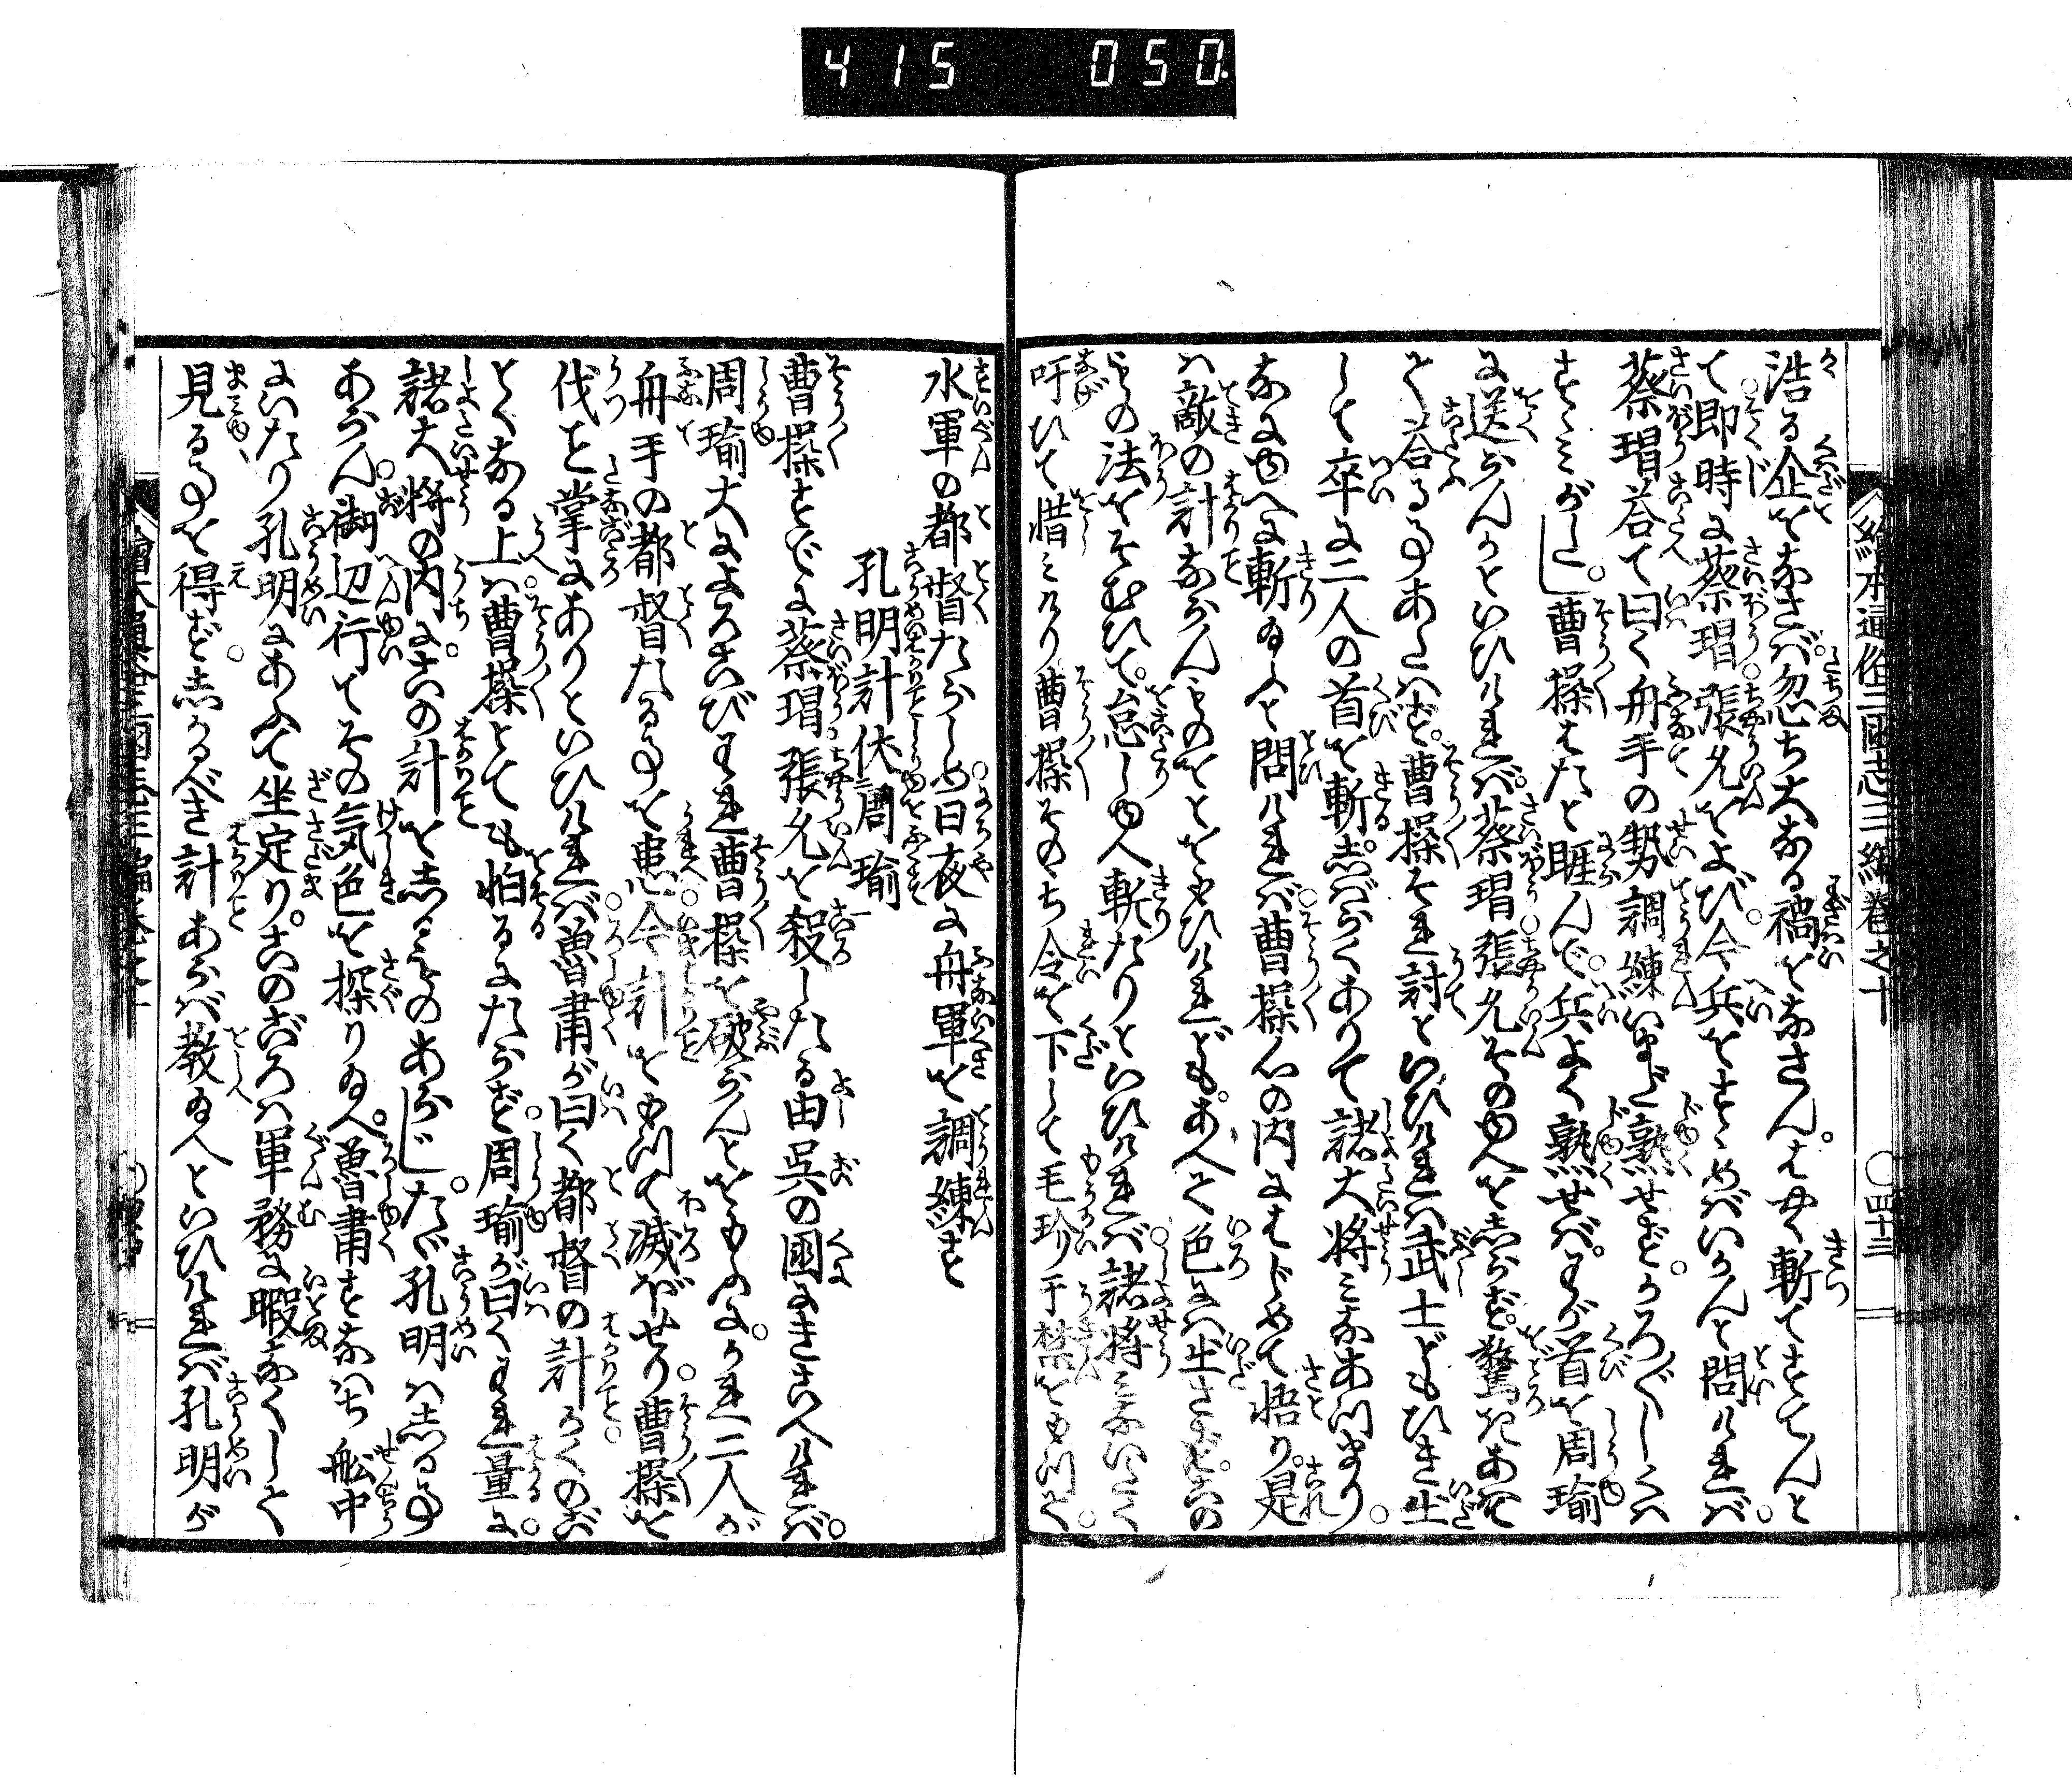 415 050.
繪本通俗三國志三編卷之十 ○四十三
浩る企をなさば。忽ち大なる禍をなさん。はやく斬てすてんと
て即時に蔡瑁張允をよび。今兵をすゝめばいかんと問ければ。
蔡瑁荅て曰く舟手の勢調練いまだ熟せず。かろ〴〵しくは
すゝみがたし」。曹操はたと睚んで。兵よく熟せば。わが首を周瑜
に送らんかといひければ。蔡瑁張允そのゆへをしらず。驚きあわ
て荅る事あたはず。曹操それ討といひければ武士どもひき出
して卒に二人の首を斬。しばらくありて諸大将みなあつまり。
なにゆへに斬ゐふと問ければ曹操心の内にはじめて悟り。是
は敵の計ならんものをとをもひけれども。あへて色には出さず。この
ものの法をそむひて。怠しゆへ斬たりといひければ諸将みないたく
吁ひて惜みけり曹操そのゝち令を下して毛玠于禁をもつて。
水軍の都督たらしめ日夜に舟軍を調練す
孔明計伏周瑜
曹操すでに蔡瑁張允を殺したる由呉の國にきこへければ。
周瑜大によろこびわれ曹操を破らんとをもふに。かれ二人が
舟手の都督たる事を患。今計をもつて滅ぼせり。曹操を
伐こと掌にありといひければ魯肅が曰く都督の計かくのご
とくなる上は曹操とても怕るにたらず。周瑜が曰くわれ量に。
諸大將の内に。この計をしるものあらじ」。たゞ孔明はしる事
あらん。御辺行てその気色を探りゐへ。魯肅すなはち舩中
にいたり孔明にあふて坐定り。このごろは軍務に暇なくして
見る事を得ず。しかるべき計あらば教ゐへといひければ孔明が